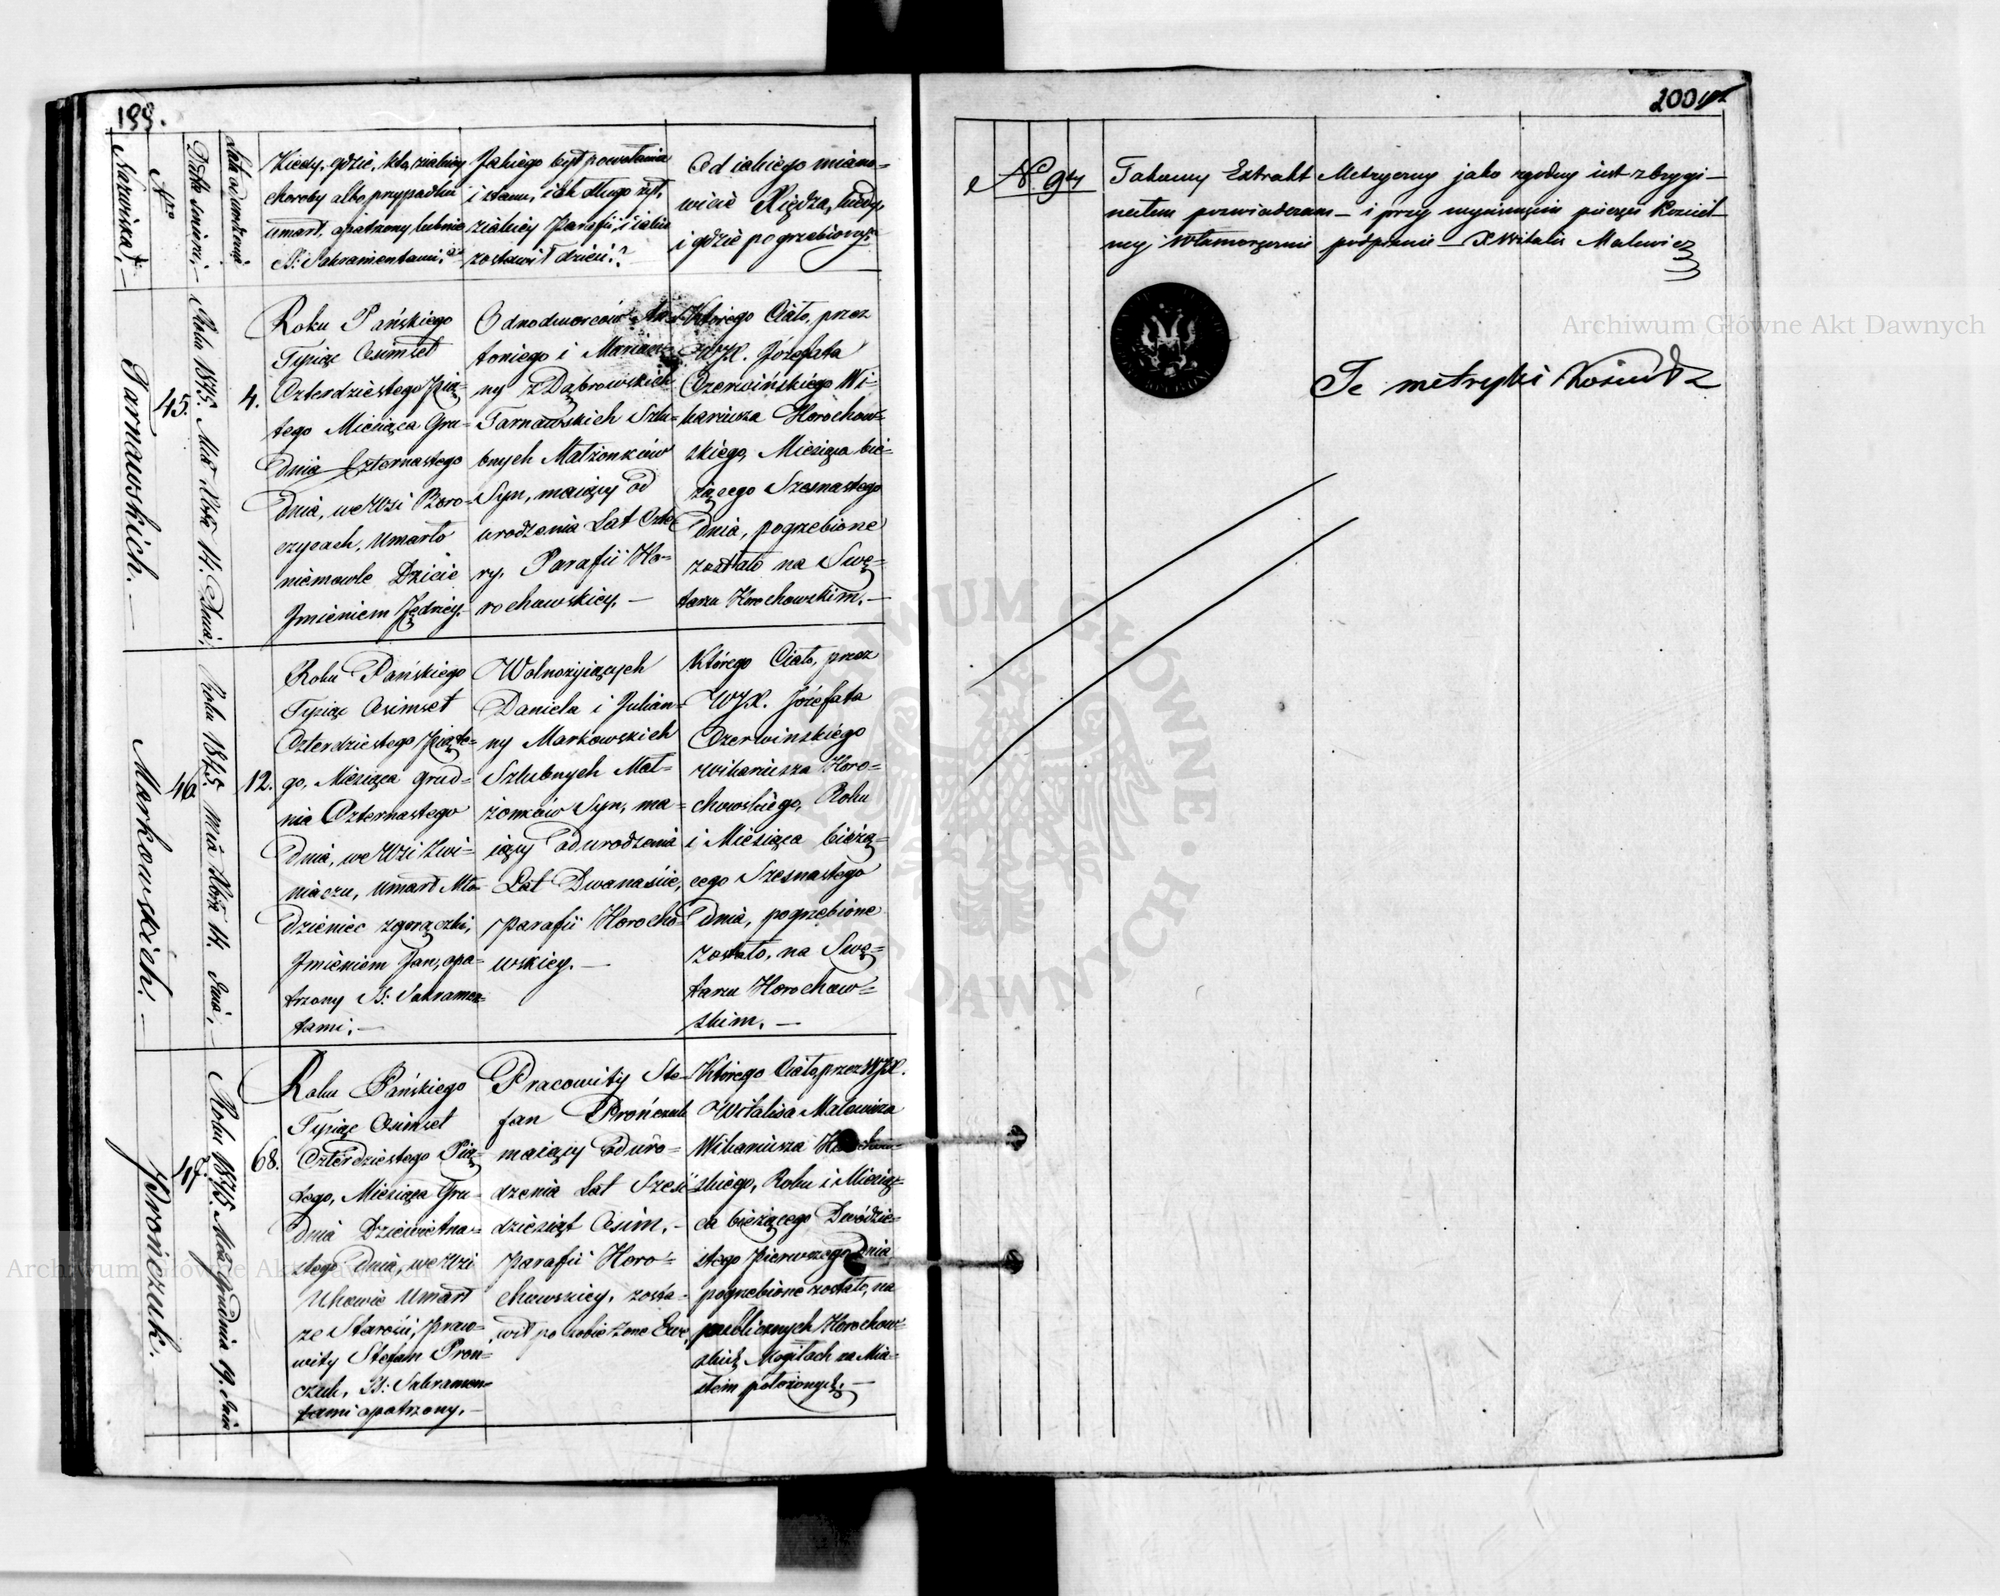 199.
Nazwiska.
Nro
Data śmierci.
Lata od urodzenia
Kiedy, gdzie, kto, z jakiey
choroby albo przypadku
umarł, opatrzony lub nie
S: Sakramentami?
Jakiego był powołania
i stanu, jak długo żył,
z jakiey Parafii, i jakie
zostawił dzieci?
Od jakiego miano=
wicie Xiędza, kiedy,
i gdzie pogrzebiony?
Tarnawskich.
45.
Roku 1845. Mca Xbra 14. Dnia.
4.
Roku Pańskiego
Tysiąc Osimset
Czterdziestego Pią=
tego Miesiąca Gru=
dnia Czternastego
dnia, we Wsi Boro=
czycach, umarło
niemowle Dziecie
Imieniem Jędrzey.
Odnodworców An=
toniego i Maryan=
ny z Dąbrowskich
Tarnawskich Szlu=
bnych Małżonków
Syn, maiący od
urodzenia Lat Czte=
ry, Parafii Ho=
rochowskiey. —
Którego Ciało, przez
WJX. Józefata
Czerwińskiego Wi=
kariusza Horochow=
skiego, Miesiąca bie=
żącego Szesnastego
dnia, pogrzebione
zostało na Smę=
tarzu Horochowskim. —
Markowskich. —
46.
Roku 1845. Mca Xbra 14. dnia. —
12.
Roku Pańskiego
Tysiąc Osimset
Czterdziestego Piąte=
go, Miesiąca Grud=
nia Czternastego
dnia, we Wsi Zwi=
niaczu, umarł Mło=
dzieniec z gorączki,
Imieniem Jan, opa=
trzony S: Sakramen=
tami. —
Wolnożyiących
Daniela i Julian=
ny Markowskich
Szlubnych Mał=
żonków Syn, ma=
iący od urodzenia
Lat Dwanaście,
Parafii Horocho=
wskiey. —
Którego Ciało, przez
WJX. Józefata
Czerwińskiego
Wikariusza Horo=
chowskiego, Roku
i Miesiąca bieżą=
cego Szesnastego
dnia, pogrzebione
zostało, na Smę=
tarzu Horochow=
skim. —
Prończuk.
47.
Roku 1845. Mca Grudnia 19. dnia
68.
Roku Pańskiego
Tysiąc Osimset
Czterdziestego Pią=
tego, Miesiąca Gru=
dnia Dziewietna=
stego Dnia, we Wsi
umarł
ze Starości, praco=
wity Stefan Pron=
czuk, S: Sakramen=
tami opatrzony. —
Pracowity Ste=
fan Prończuk
maiący od uro=
dzenia Lat Sześć=
dziesiąt Osim. —
Parafii Horo=
chowskiey, zosta=
wił po sobie żone Ewe.
Którego Ciało, przez WJX.
Witalisa Malewicza
Wikariusza Horochow=
skiego, Roku i Miesią=
ca bieżącego Dwódzie=
stego pierwszego Dnia
pogrzebione zostało, na
publicznych Horochow=
skich Mogiłach za Mia=
stem położonych. —
200
N. 94
Takowy Extrakt Metryczny jako zgodny iest z Orygi=
nałem poswiadczam — i przy wyciśnięciu pieczęci Kościel=
ney Własnoręcznie podpisuie X Witalis Malewicz
Te metryki
Archiwum Główne Akt Dawnych
Archiwum Główne Akt Dawnych
ARCHIWUM GŁÓWNE AKT DAWNYCH